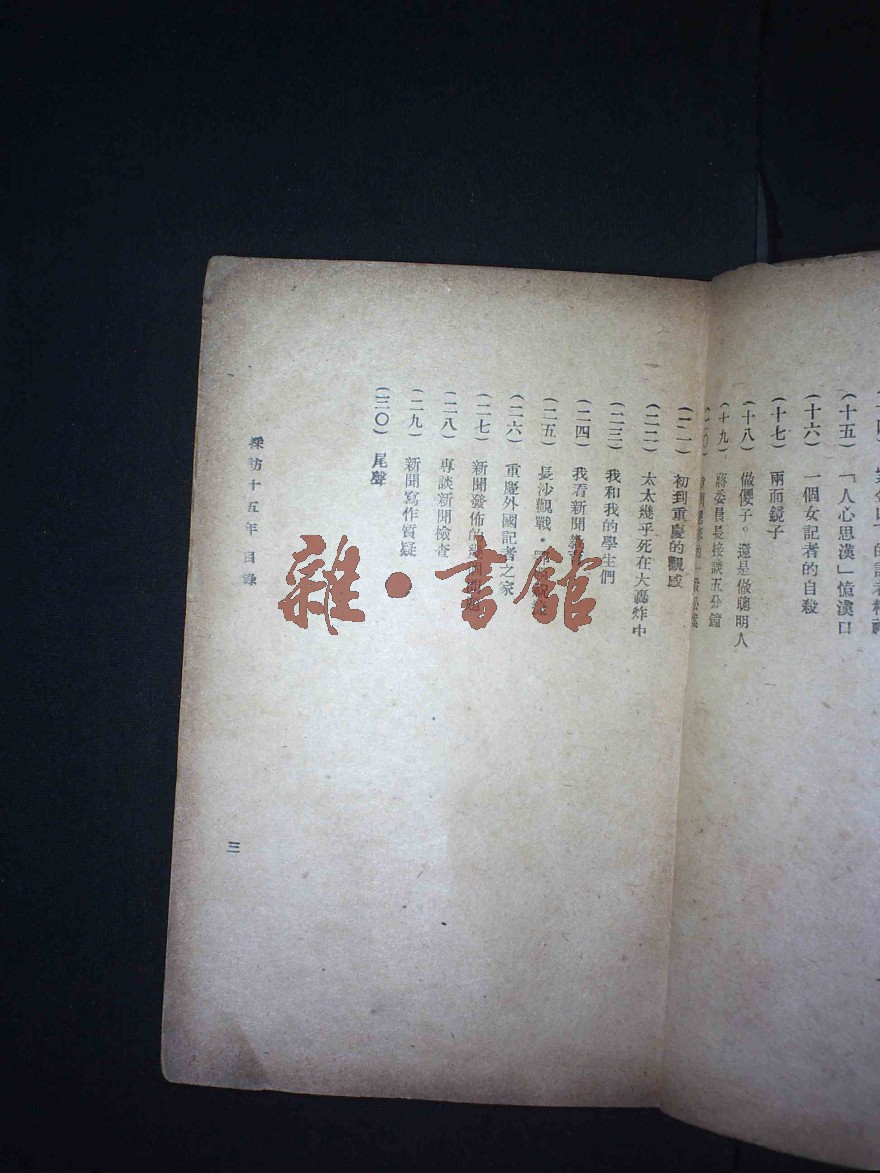 的記者精神
（十五）「人心思漢」憶漢口
（十六）一個女記者的自殺
（十七）兩面鏡子
（十八）做儍子。還是做聰明人
（十九）蔣委員長接談五分鐘
（二一）初到重慶的觀感
（二二）太太幾乎死在大轟炸中
（二三）我和我的學生們
（二四）我看新聞教育
（二五）長沙觀戰·
（二六）重慶外國記者之家
（二七）新聞發佈的
（二八）專談新聞檢查
（二九）新聞寫作質疑
（三〇）尾聲
採訪十五年 目錄
三
雜·書館